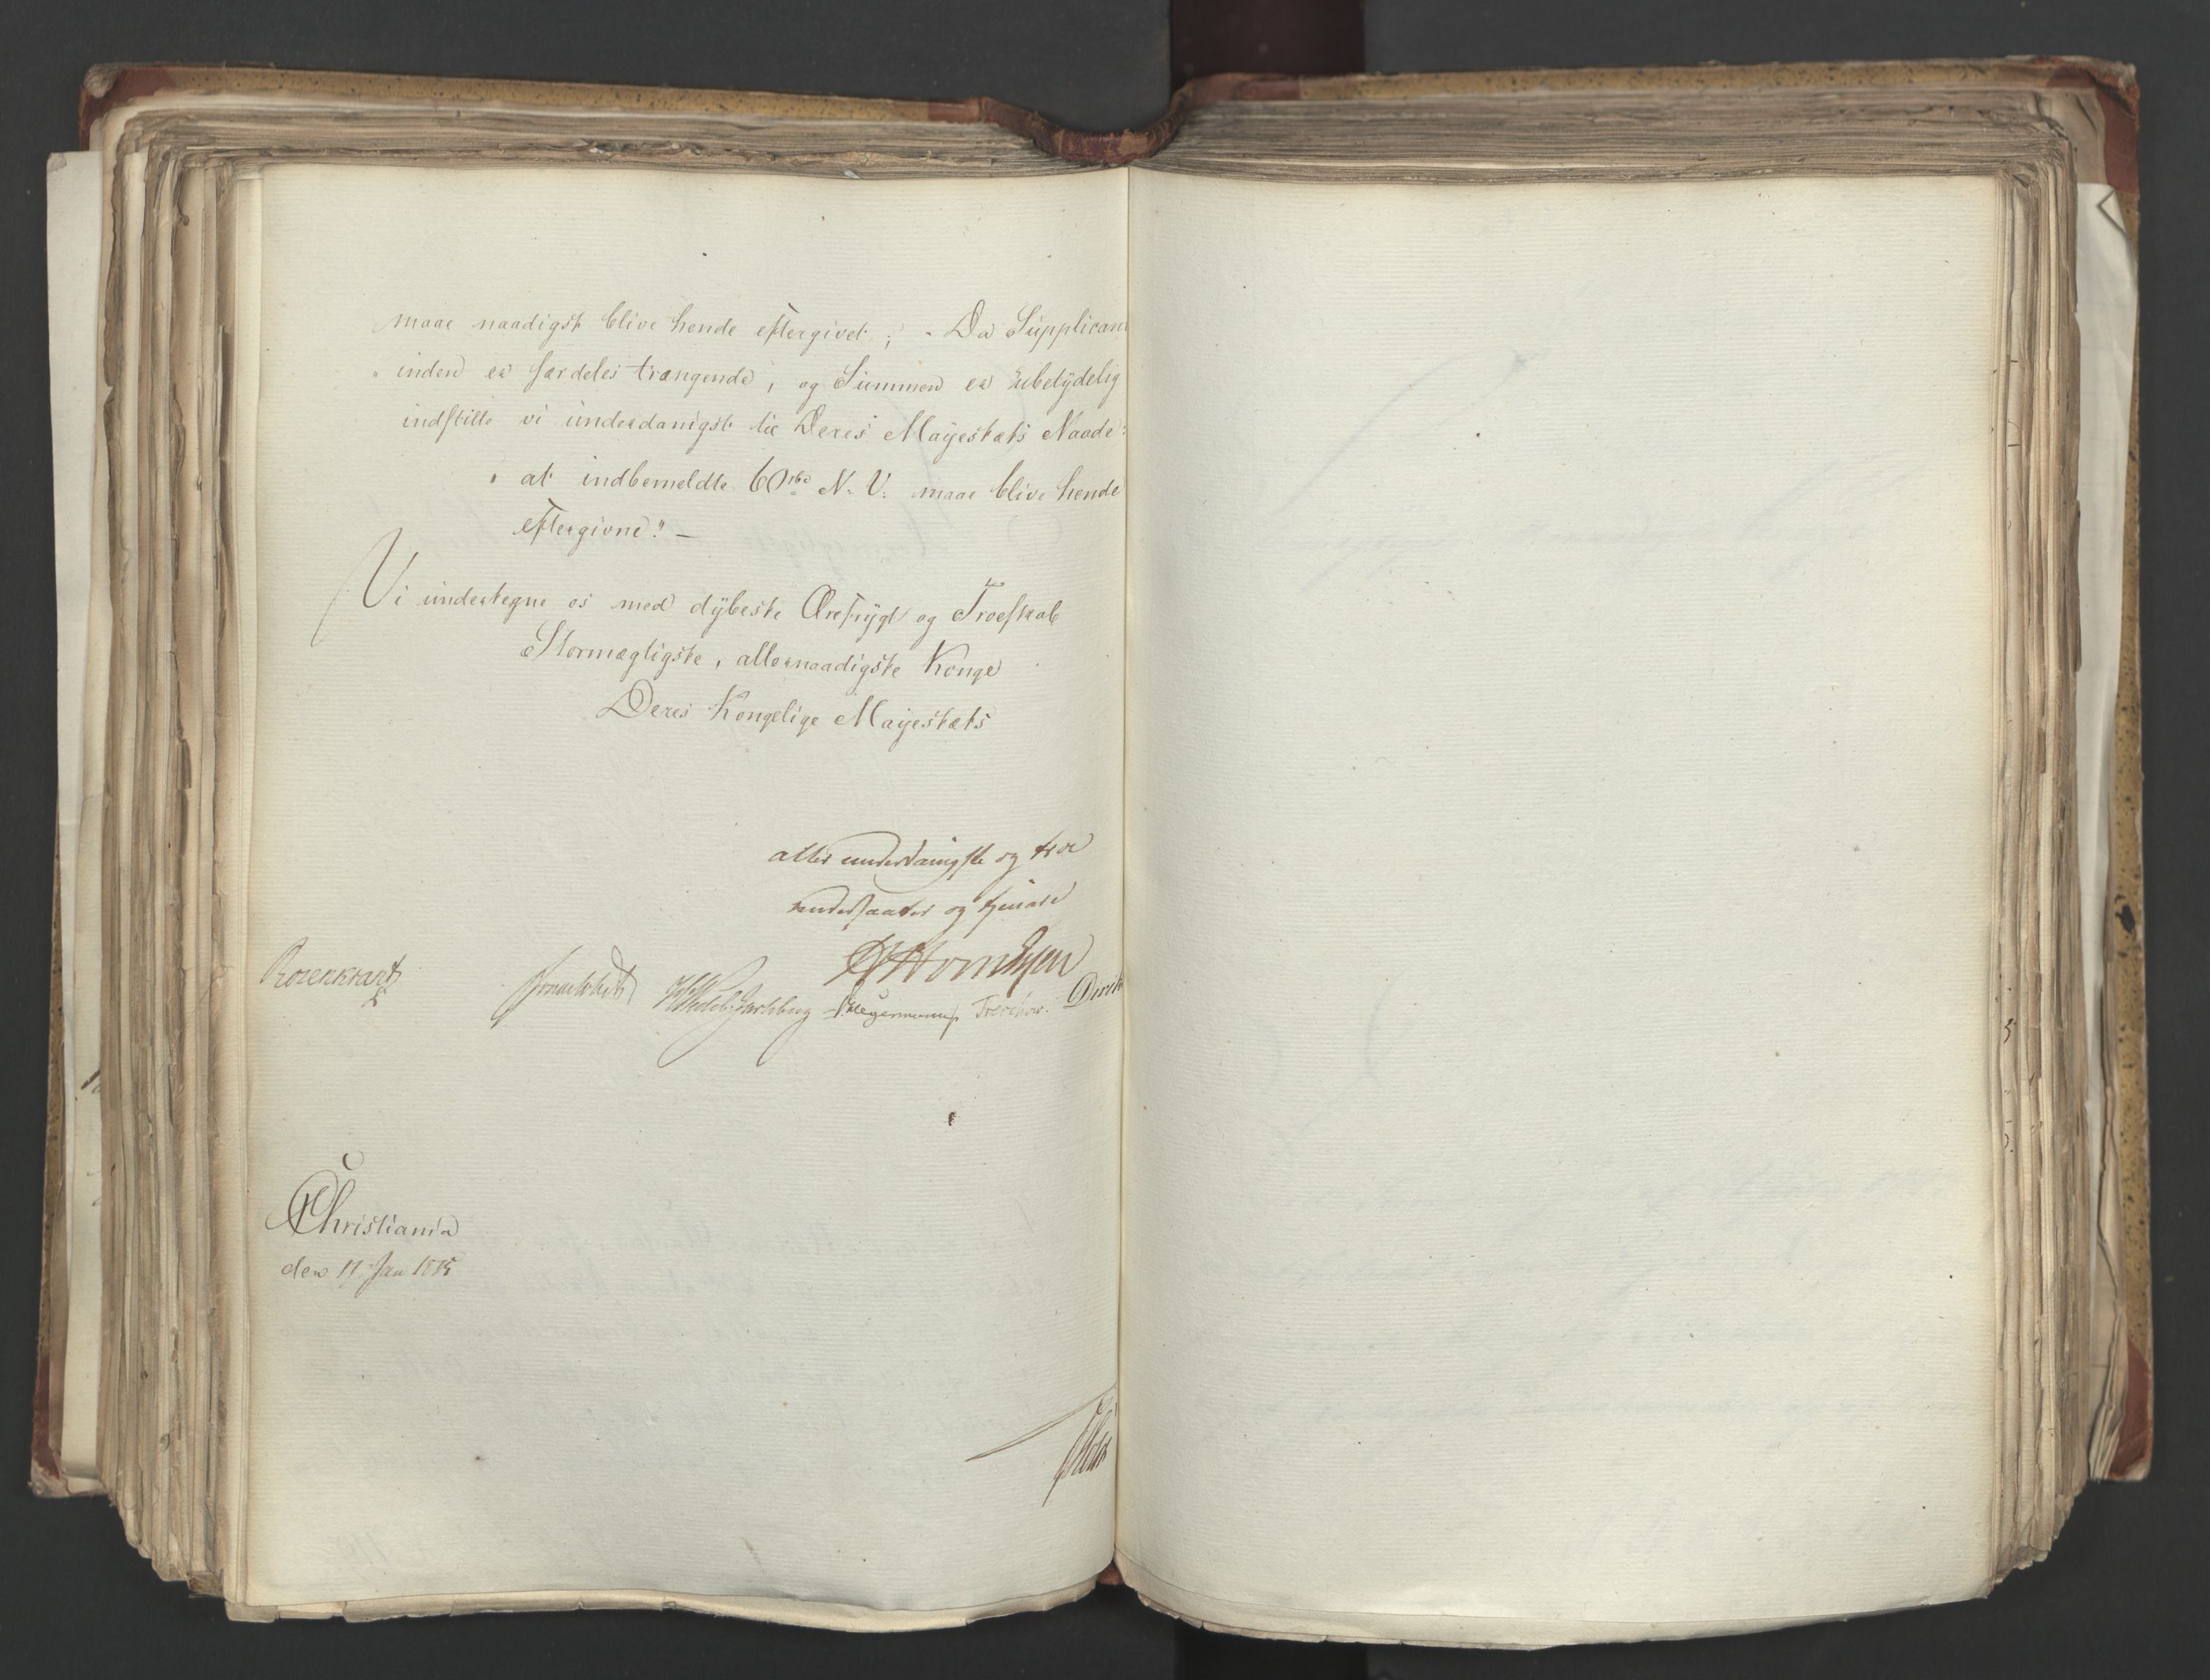 maae naadigst blive hende eftergivet; - Da Supplicant
inden er særdeles trængende, og Summen er ubetydelig
indstille vi underdanigst til Deres Mayestæts Naade:
at indbemeldte 60 rbd N. V. maae blive hende
eftergivne." -
Vi undertegne os med dybeste Ærefrygt og Troeskab
Stormægtigste, allernaadigste Konge
Deres Kongelige Mayestæts
allerunderdanigste og troe
undersaatter og tjenere
Rosenkrantz
Sommerhielm
HWedel Jarlsberg Hegermann Treschow. Dirik
Christiania
den 17 Jan 1815